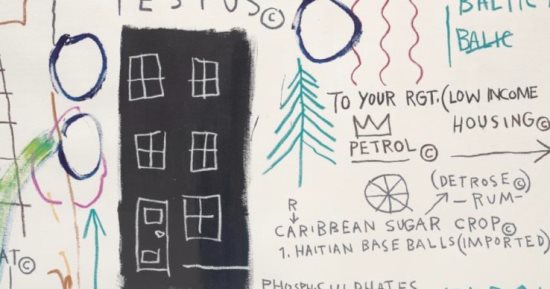 BALTIC
BALTIC
TO YOUR RGT. (LOW INCOME
HOUSING ©
PETROL ©
(DETROSE ©)
-RUM-
R
CARIBBEAN SUGAR CROP ©
1. HAITIAN BASE BALLS (IMPORTED)
AT ©
PHOSPHSULPHATES